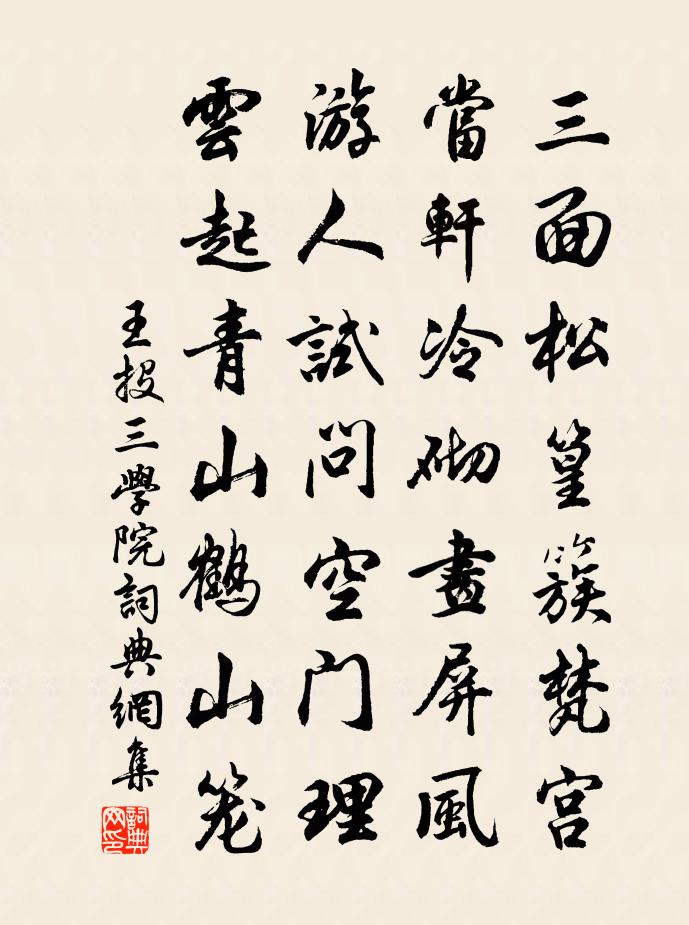 三面松篁簇梵宫
當軒冷砌畫屏風
游人試問空门理
雲起青山鶴山笼
王投三學院詞典網集
詞典网印